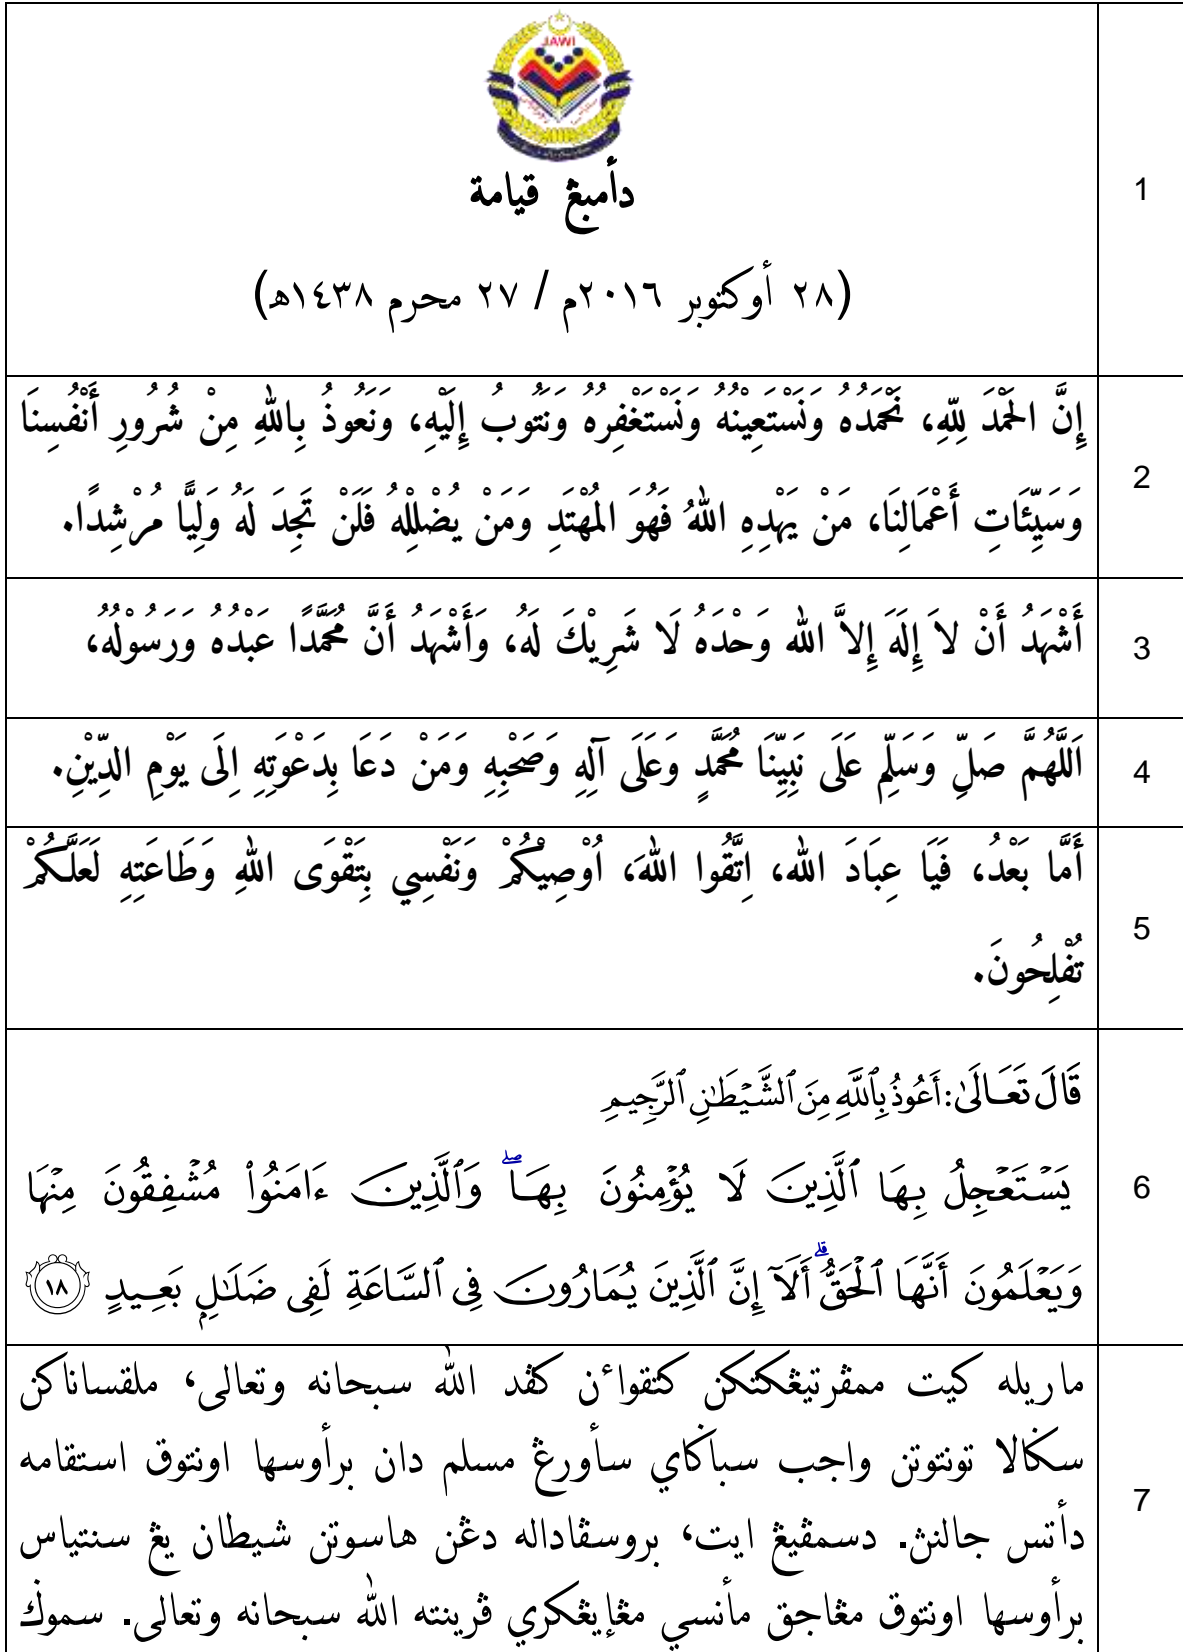 JAWI
دأمبڠ قيامة
(٢٨ أوكتوبر ٢٠١٦م / ٢٧ محرم ١٤٣٨ه)
1
إِنَّ الحَمْدَ لِلّٰهِ، نَحْمَدُهُ وَنَسْتَعِيْنُهُ وَنَسْتَغْفِرُهُ وَنَتُوبُ إِلَيْهِ، وَنَعُوذُ بِاللهِ مِنْ شُرُورِ أَنْفُسِنَا
وَسَيِّئَاتِ أَعْمَالِنَا، مَنْ يَهْدِهِ اللهُ فَهُوَ المُهْتَدِ وَمَنْ يُضْلِلْهُ فَلَنْ تَجِدَ لَهُ وَلِيًّا مُرْشِدًا.
2
أَشْهَدُ أَنْ لاَ إِلَهَ إِلاَّ الله وَحْدَهُ لَا شَرِيْكَ لَهُ، وَأَشْهَدُ أَنَّ مُحَمَّدًا عَبْدُهُ وَرَسُوْلُهُ،
3
اَللَّهُمَّ صَلِّ وَسَلِّم عَلَى نَبِيِّنَا مُحَمَّدٍ وَعَلَى آلِهِ وَصَحْبِهِ وَمَنْ دَعَا بِدَعْوَتِهِ اِلَى يَوْمِ الدِّيْنِ.
4
أَمَّا بَعْدُ، فَيَا عِبَادَ الله، اِتَّقُوا اللهَ، اُوْصِيْكُمْ وَنَفْسِي بِتَقْوَى اللهِ وَطَاعَتِهِ لَعَلَّكُمْ
تُفْلِحُونَ.
5
قَالَ تَعَالَىٰ: أَعُوذُ بِٱللَّهِ مِنَ ٱلشَّيْطَٰنِ ٱلرَّجِيمِ
يَسْتَعْجِلُ بِهَا ٱلَّذِينَ لَا يُؤْمِنُونَ بِهَاۖ وَٱلَّذِينَ ءَامَنُواْ مُشْفِقُونَ مِنْهَا
وَيَعْلَمُونَ أَنَّهَا ٱلْحَقُّۗ أَلَآ إِنَّ ٱلَّذِينَ يُمَارُونَ فِى ٱلسَّاعَةِ لَفِى ضَلَٰلٍۭ بَعِيدٍ ١٨
6
ماريله كيت ممڤرتيڠكتكن كتقواءن كڤد الله سبحانه وتعالى، ملقساناكن
سݢالا تونتوتن واجب سباݢاي سأورڠ مسلم دان برأوسها اونتوق استقامه
دأتس جالنڽ. دسمڤيڠ ايت، بروسڤاداله دڠن هاسوتن شيطان يڠ سنتياس
برأوسها اونتوق مڠاجق مأنسي مڠإيڠكري ڤرينته الله سبحانه وتعالى. سموݢ
7